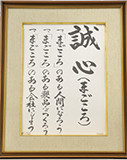 誠心(まごころ)
「まごころ」のある人間になろう
「まごころ」のある製品をつくろう
「まごころ」のある会社にしよう